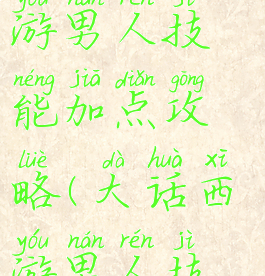 yóu nán rén jì
游男人技
néng jiā diǎn gōng
能加点攻
lüè dà huà xī
略(大话西
yóu nán rén jì
游男人技